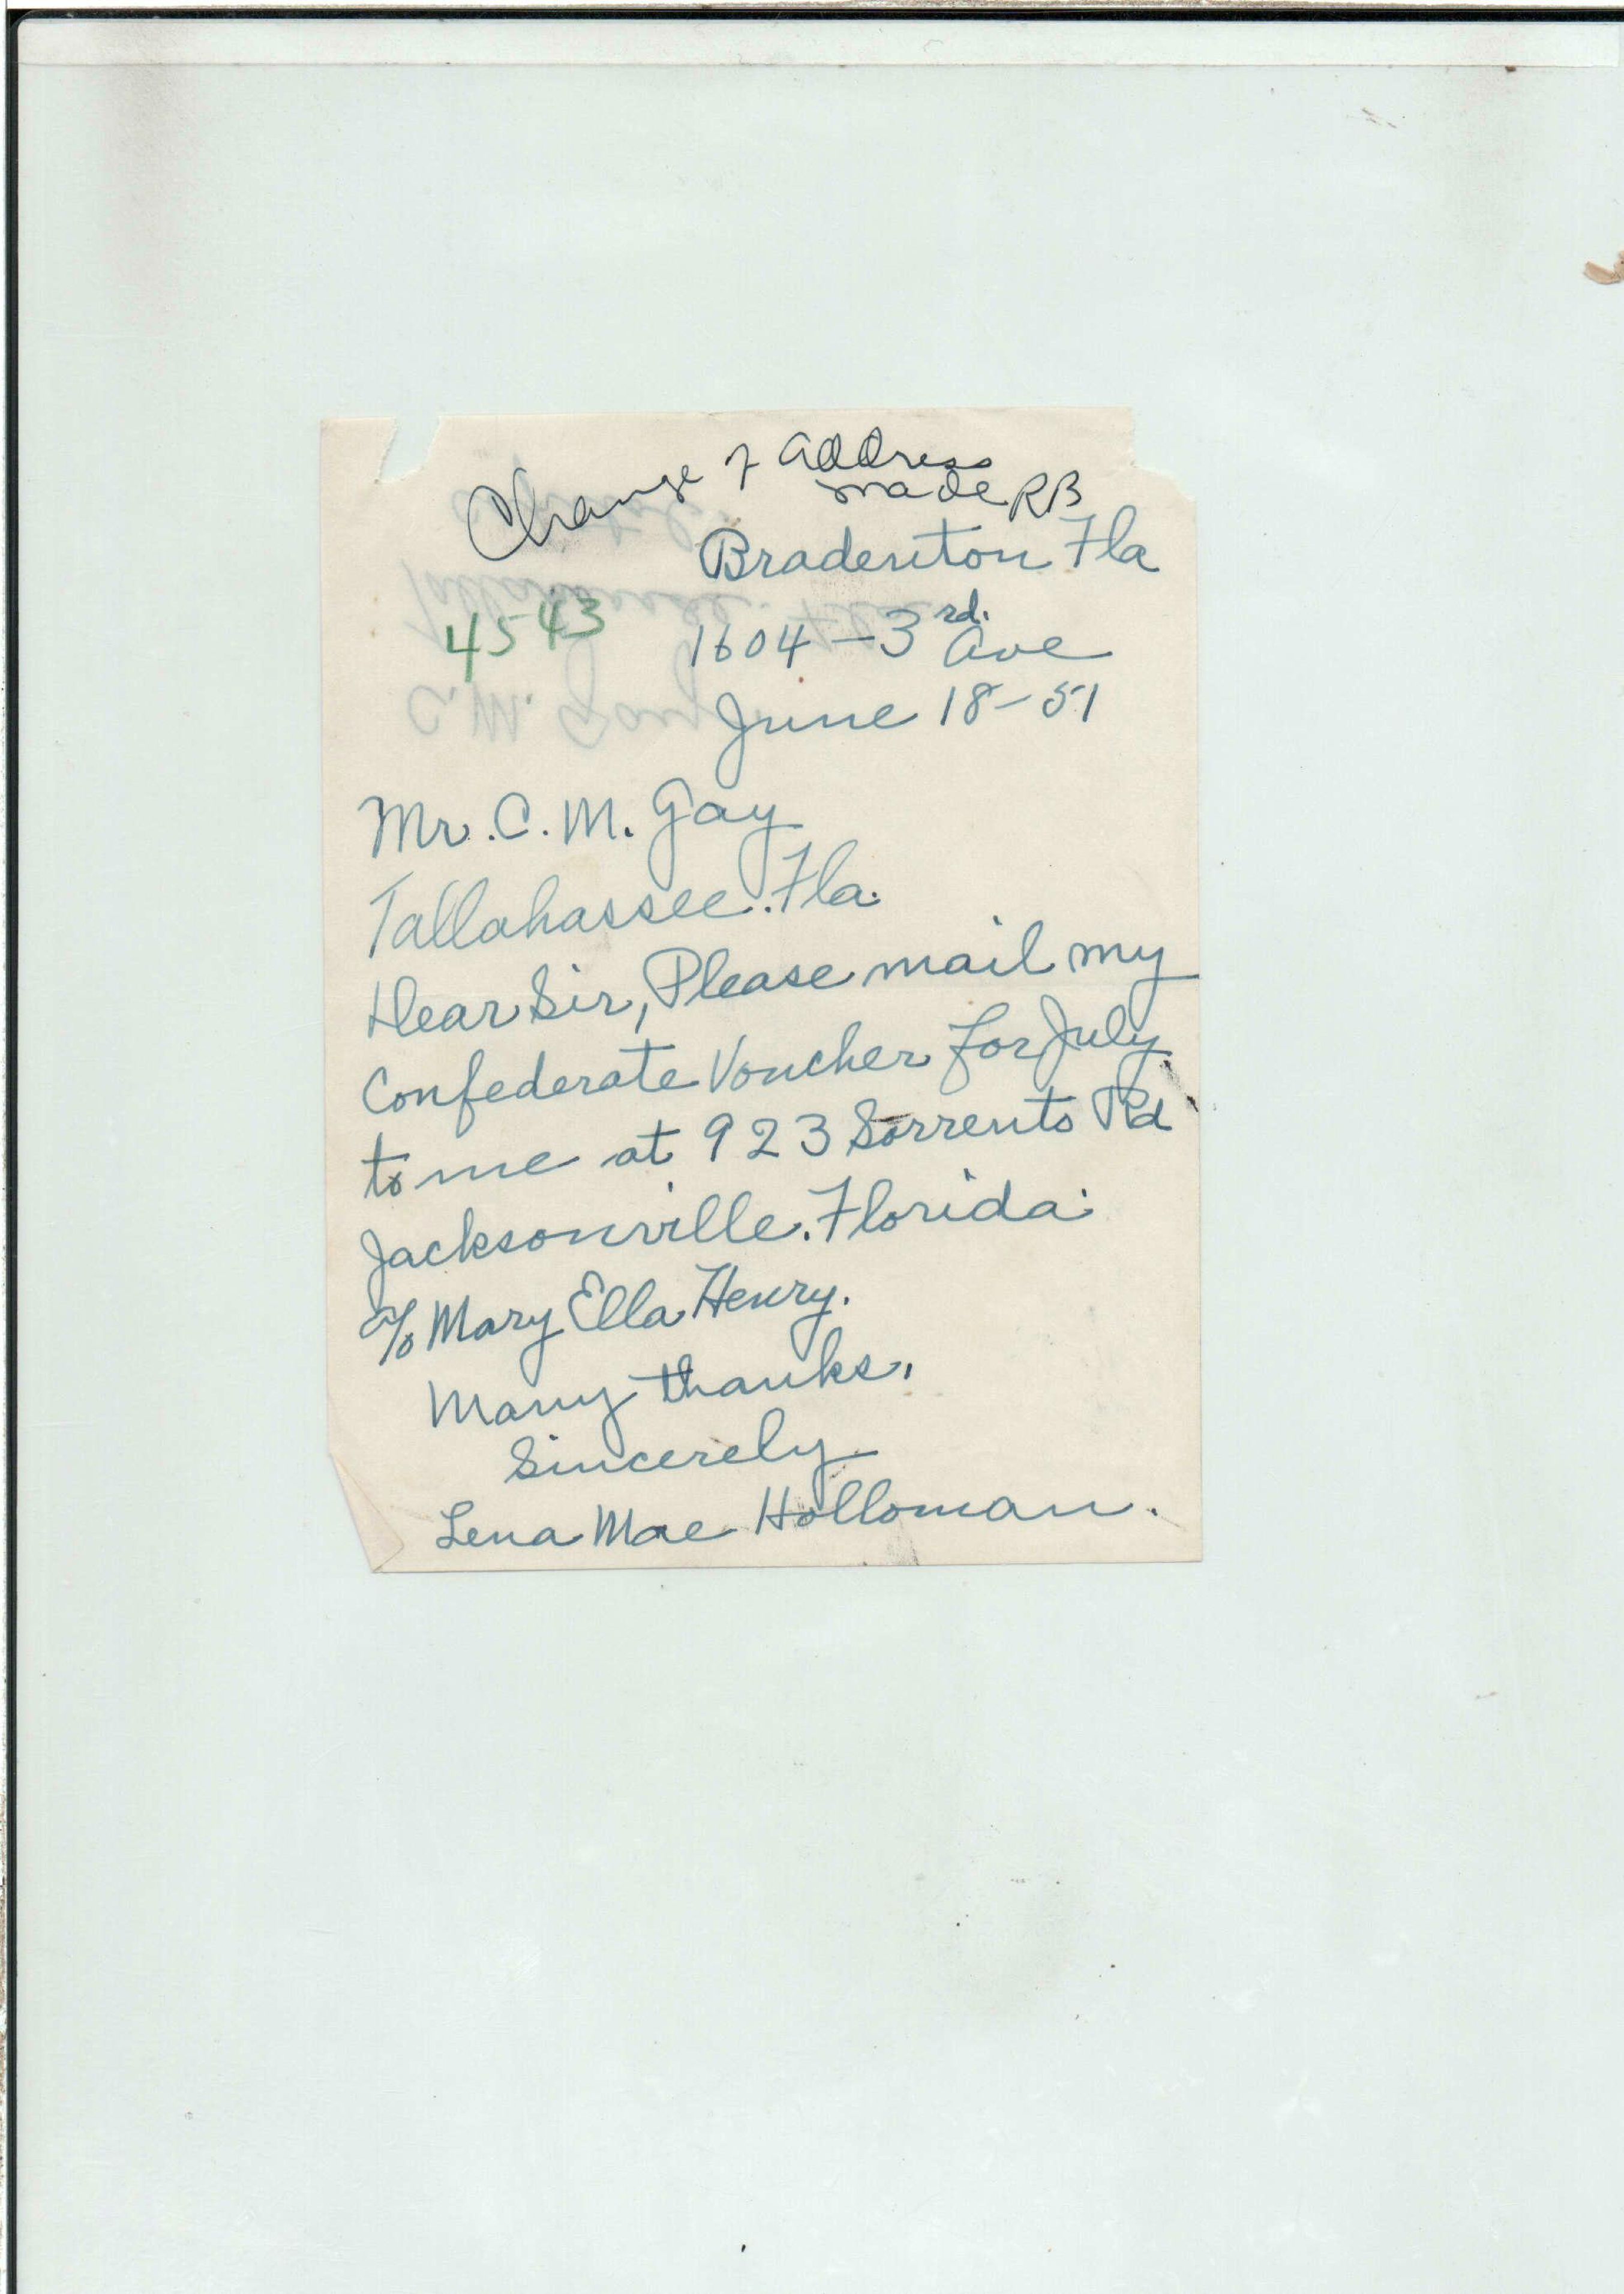 Change of address
made RB
Bradenton Fla
4543
1604 - 3rd. Ave
June 18-51
Mr. C. M. Gay
Tallahassee. Fla.
Dear Sir, Please mail my
Confederate Voucher for July
to me at 923 Sorrento Rd
Jacksonville. Florida.
c/o Mary Ella Henry.
Many thanks.
Sincerely
Lena Mae Holloman.